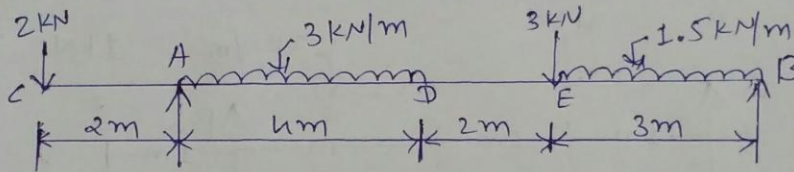 2KN
3KN/m
3KN
1.5KN/m
C
A
D
E
B
2m
4m
2m
3m